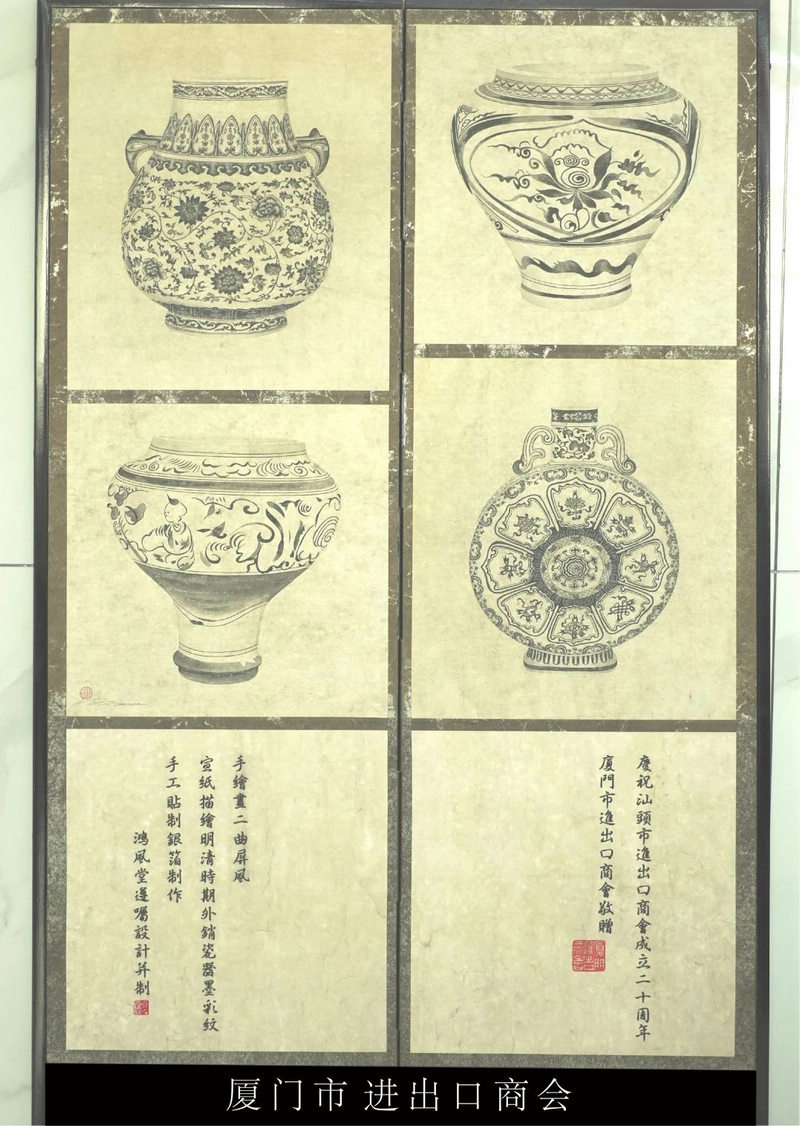 慶祝汕頭市進出口商會成立二十周年
廈門市進出口商會敬贈
手繪畫二曲屏風
宣紙描繪明清時期外銷瓷器墨彩紋
手工貼制銀箔制作
鴻風堂遵囑設計并制
厦门市 进出口商会